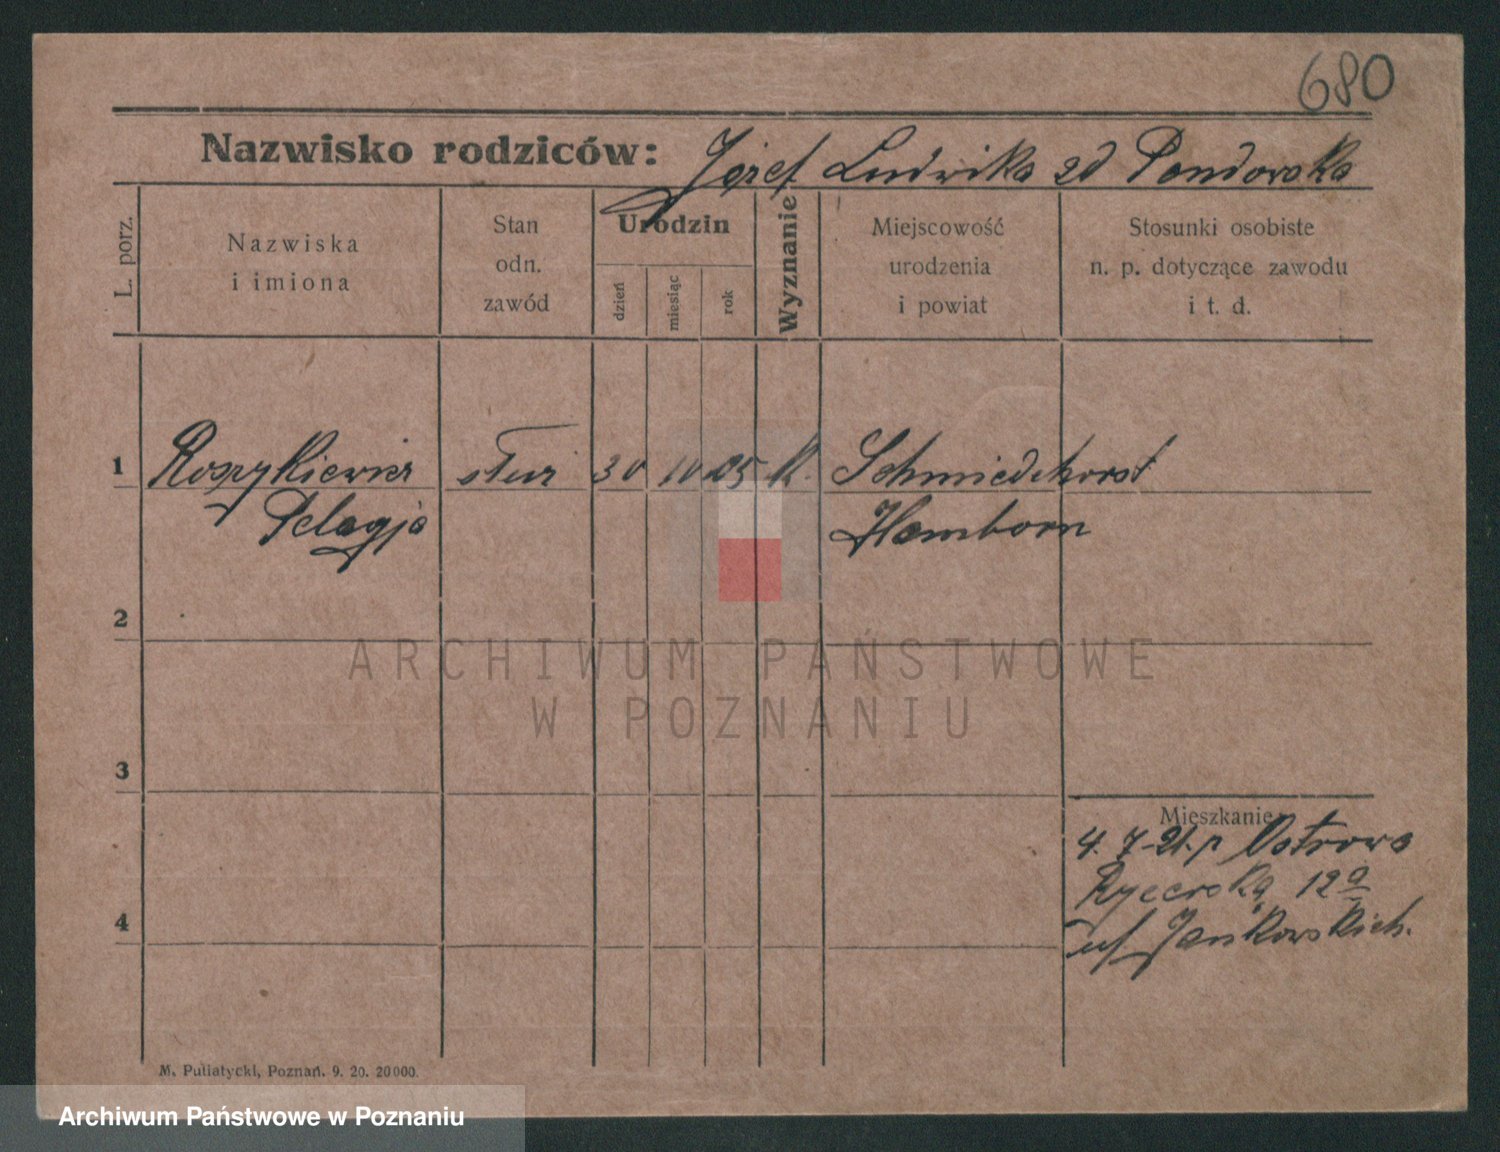 680
Nazwisko rodziców: Józef Ludwika zd Pondowska
L. porz.
Nazwiska
i imiona
Stan
odn.
zawód
Urodzin
dzień
miesiąc
rok
Wyznanie
Miejscowość
urodzenia
i powiat
Stosunki osobiste
n. p. dotyczące zawodu
i t. d.
1 Roszykiewicz 30 10 05 K. Schmiedehorst
Pelagja Hamborn
2
ARCHIWUM PAŃSTWOWE
W POZNANIU
3
Mieszkanie
4. 7. 21. p Ostrowo
Rycerska 12a
4
Jankowskich.
M. Putiatycki, Poznań. 9. 20. 20000.
Archiwum Państwowe w Poznaniu